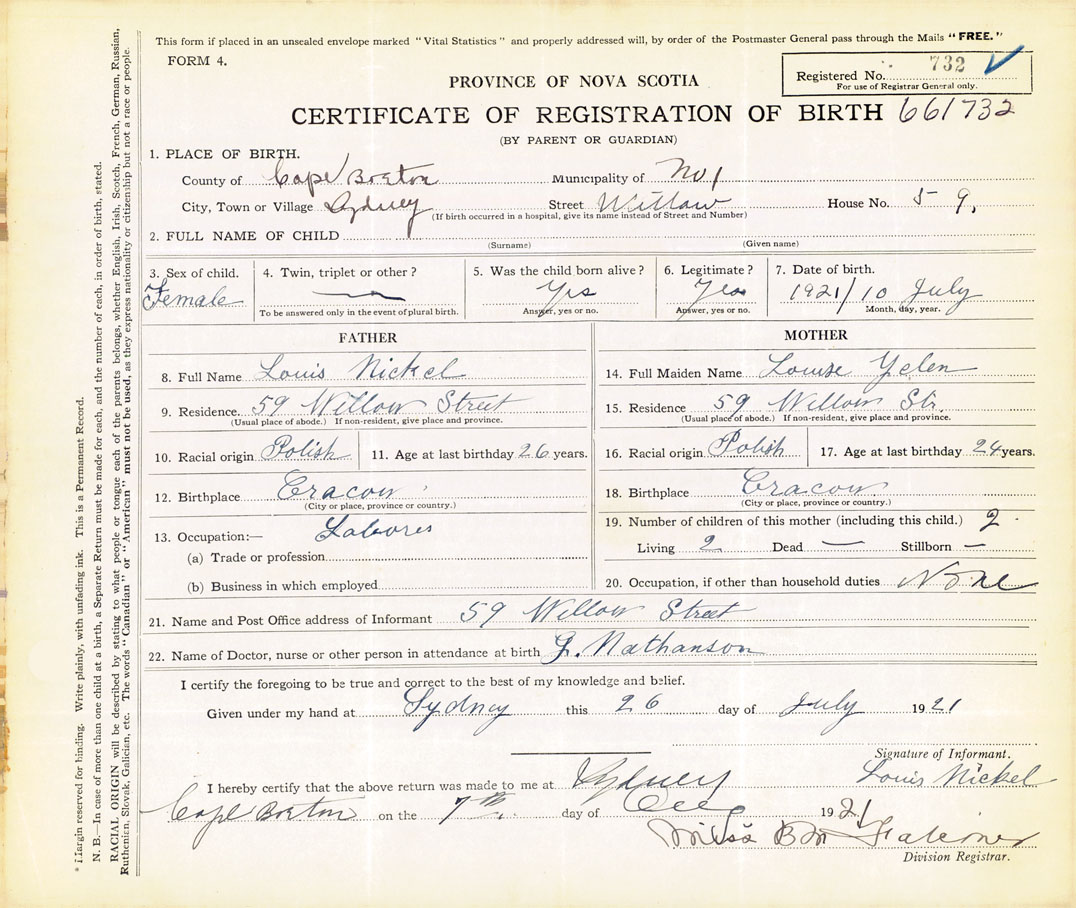 This form if placed in an unsealed envelope marked "Vital Statistics" and properly addressed will, by order of the Postmaster General pass through the Mails "FREE."
FORM 4.
Registered No. 732
For use of Registrar General only.
PROVINCE OF NOVA SCOTIA
CERTIFICATE OF REGISTRATION OF BIRTH 661732
(BY PARENT OR GUARDIAN)
1. PLACE OF BIRTH.
County of Cape Breton Municipality of No 1
City, Town or Village Sydney Street Willow House No. 59.
(If birth occurred in a hospital, give its name instead of Street and Number)
2. FULL NAME OF CHILD
(Surname) (Given name)
3. Sex of child. 4. Twin, triplet or other? 5. Was the child born alive? 6. Legitimate? 7. Date of birth.
Female — Yes Yes 1921/10 July
To be answered only in the event of plural birth. Answer, yes or no. Answer, yes or no. Month, day, year.
FATHER
8. Full Name Louis Nickel
9. Residence. 59 Willow Street
(Usual place of abode.) If non-resident, give place and province.
10. Racial origin Polish 11. Age at last birthday 26 years.
12. Birthplace Cracow
(City or place, province or country.)
13. Occupation:— Labores
(a) Trade or profession
(b) Business in which employed
MOTHER
14. Full Maiden Name Louise Yelen
15. Residence 59 Willow Str.
(Usual place of abode.) If non-resident, give place and province.
16. Racial origin Polish 17. Age at last birthday 24 years.
18. Birthplace Cracow
(City or place, province or country.)
19. Number of children of this mother (including this child.) 2
Living 2 Dead — Stillborn —
20. Occupation, if other than household duties None
21. Name and Post Office address of Informant 59 Willow Street
22. Name of Doctor, nurse or other person in attendance at birth G. Nathanson
I certify the foregoing to be true and correct to the best of my knowledge and belief.
Given under my hand at Sydney this 26 day of July 1921
Signature of Informant.
Louis Nickel
I hereby certify that the above return was made to me at Sydney
Cape Breton on the 7th day of 1921
Miss B M Falconer
Division Registrar.
* Margin reserved for binding. Write plainly, with unfading ink. This is a Permanent Record.
N. B.—In case of more than one child at a birth, a Separate Return must be made for each, and the number of each, in order of birth, stated.
RACIAL ORIGIN will be described by stating to what people or tongue each of the parents belongs, whether English, Irish, Scotch, French, German, Russian,
Ruthenian, Slovak, Galician, etc. The words "Canadian" or "American" must not be used, as they express nationality or citizenship but not a race or people.